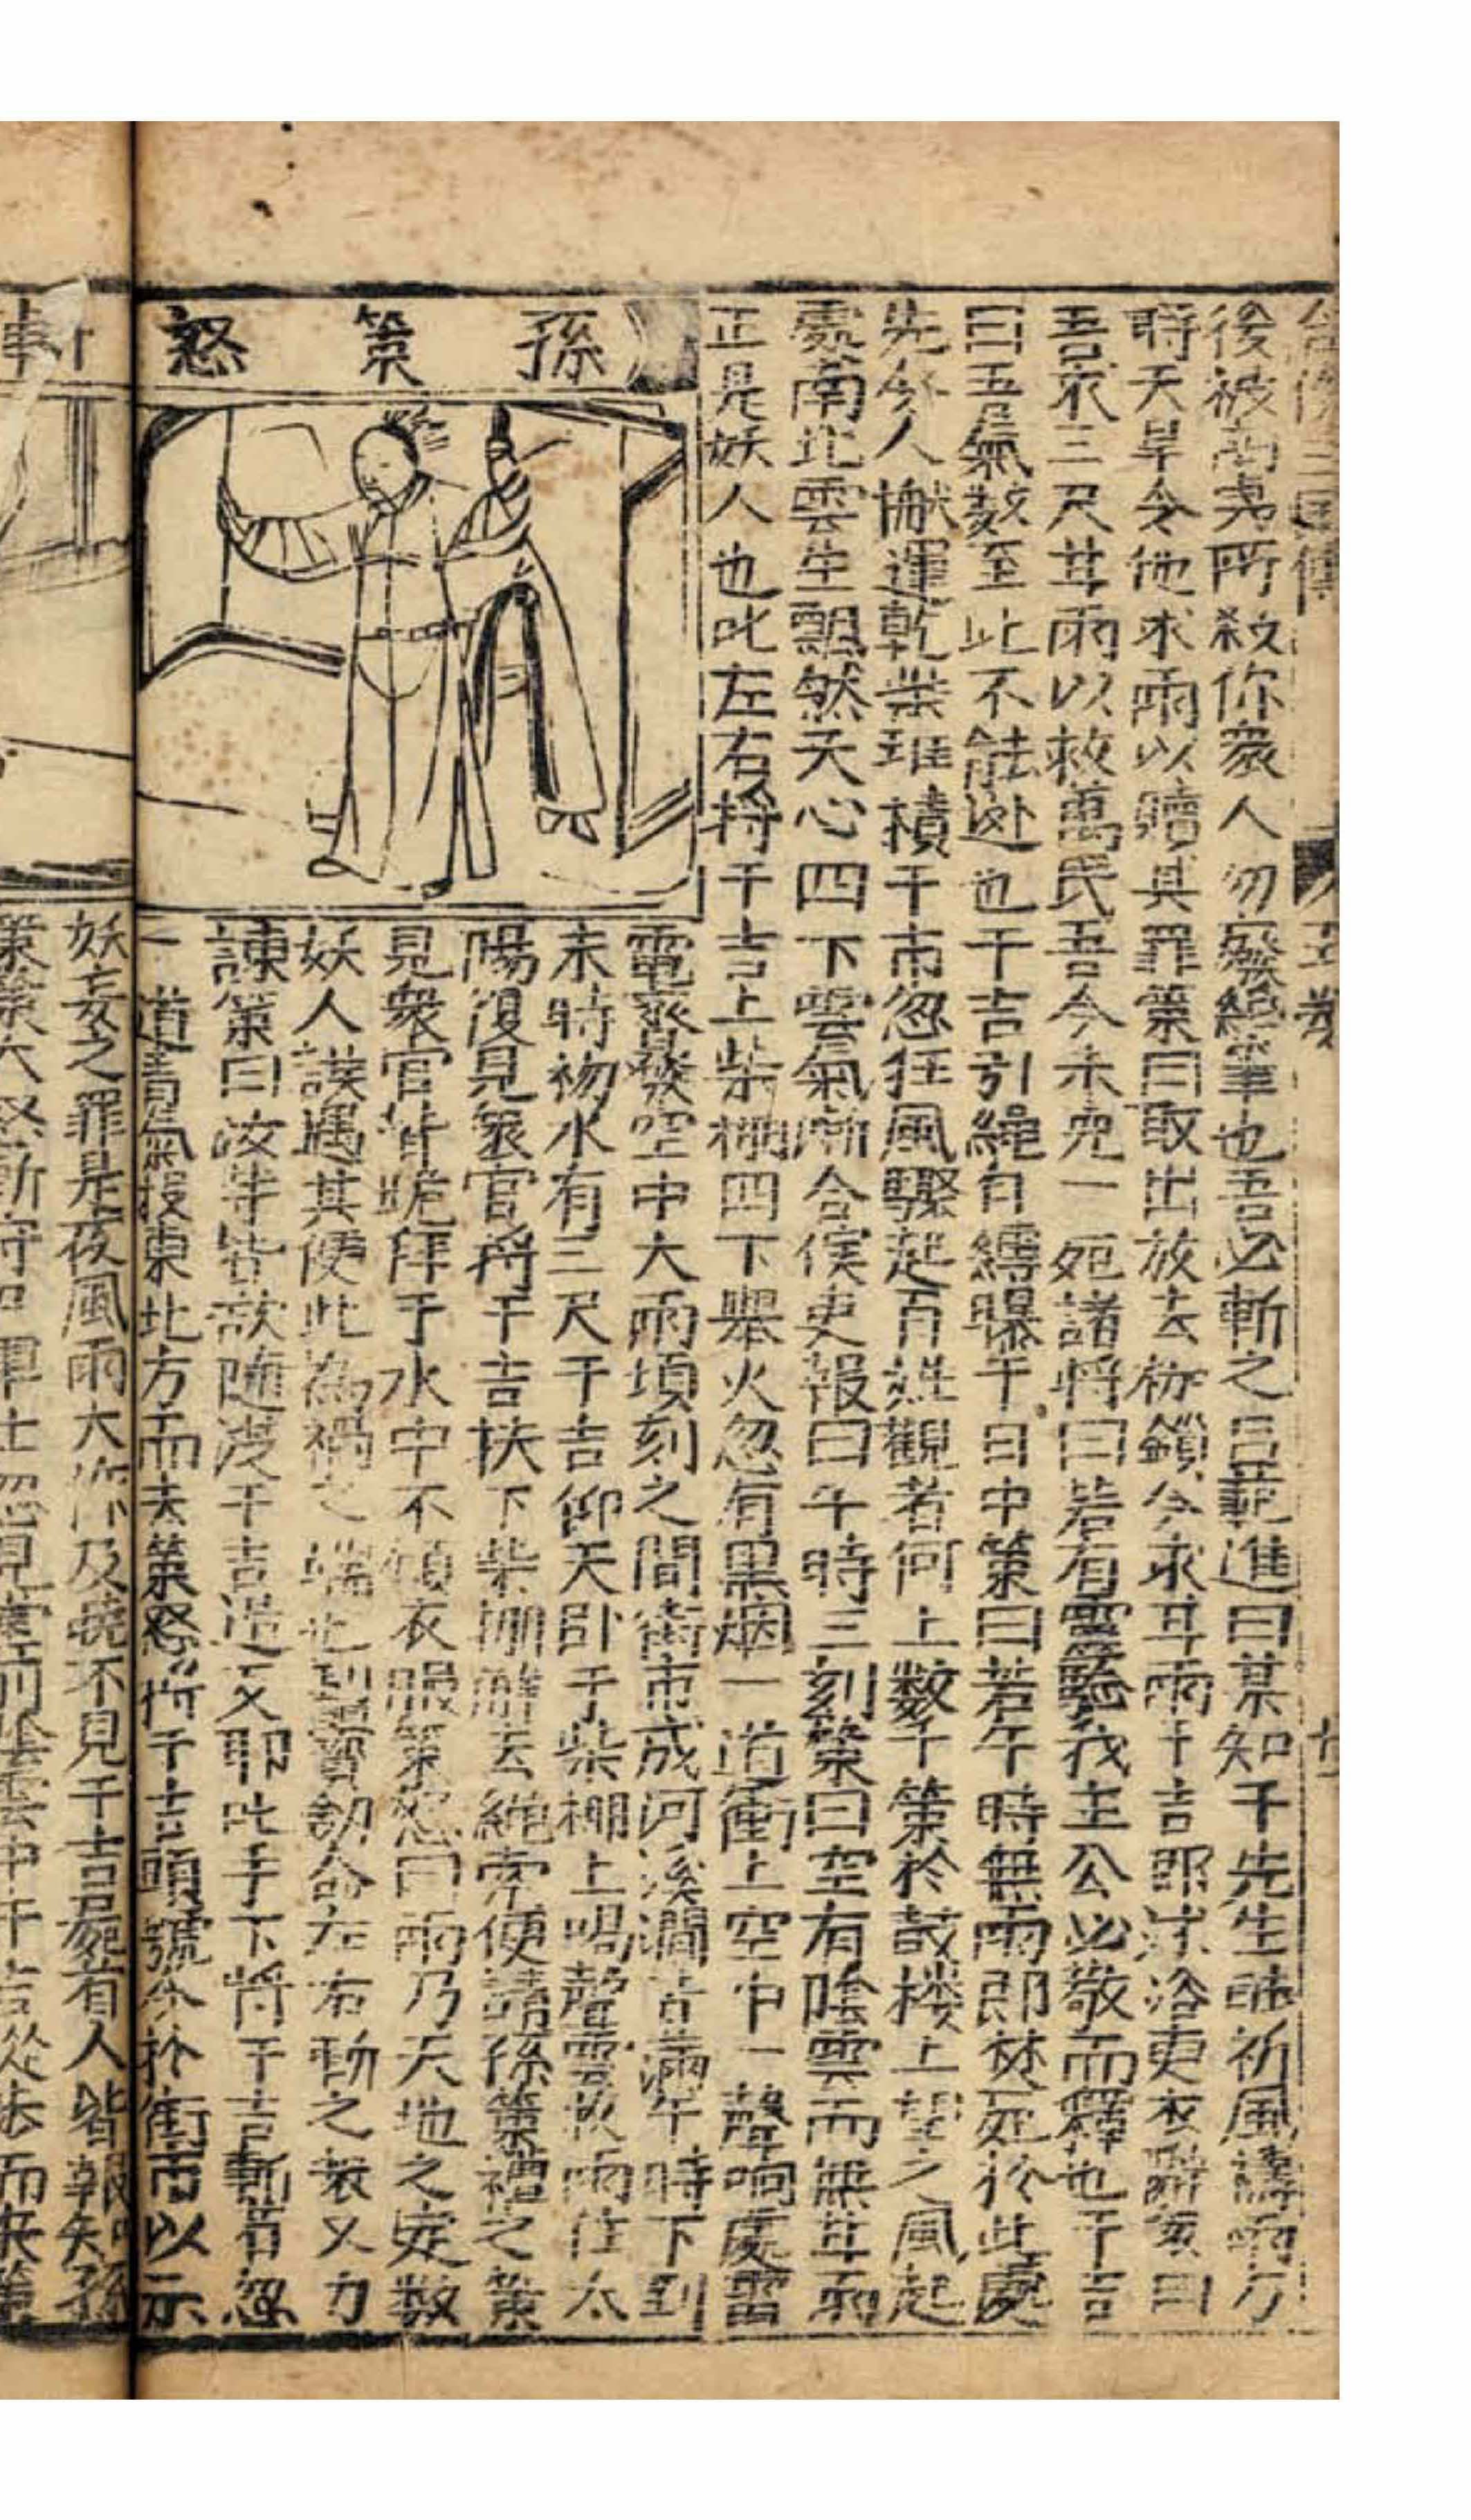 後被高夷所殺你衆人勿廢紙筆也吾必斬之呂範進曰某知干先生能祈風禱雨方
時天旱令他求雨以贖其罪策曰取出放去枷鎖令求甘雨干吉即沐浴更衣辭衆曰
吾求三尺甘雨以救萬民吾今未免一死諸將曰若有靈驗我主公必敬而釋也干吉
曰吾氣数至此不能迯也干吉引繩自縛曝于日中策曰若午時無雨即焚死於此處
先令人搬運乾柴堆積于市忽狂風驟起百姓觀者何止数千策於鼓楼上望之風起
處南北雲生飄然天心四下雲氣漸合候吏報曰午時三刻策曰空有陰雲而無甘雨
正是妖人也叱左右将干吉上柴棚四下舉火忽有黒烟一道衝上空中一聲响處雷
孫策怒
電齊發空中大雨頃刻之間街市成河溪澗皆滿午時下到
未時初水有三尺干吉仰天卧于柴棚上喝聲雲收雨住太
陽復見衆官将干吉扶下柴棚解去繩索便請孫策禮之策
見衆官皆跪拜于水中不傾衣服策怒曰雨乃天地之定数
妖人誤遇其便此為禍之端也掣寳劍命左右斬之衆又力
諫策曰汝等皆欲随從干吉造反耶叱手下將干吉斬首忽
一道青氣投東北方而去策怒將干吉頭號令於街市以示
妖妄之罪是夜風雨大作及曉不見干吉屍首有人皆報知孫